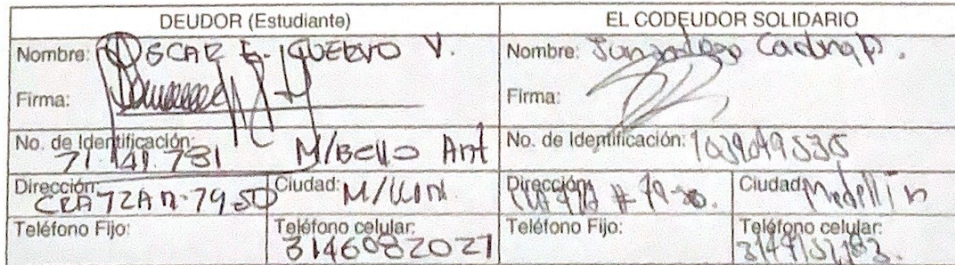 DEUDOR (Estudiante) EL CODEUDOR SOLIDARIO
Nombre: OSCAR E. CUERVO V. Nombre: Juan Diego Cardona P.
Firma: Firma:
No. de Identificación: 71.141.781 M/Bello Ant No. de Identificación: 1039049535
Dirección: CRA 72A N-79 50 Ciudad: M/LLIN. Dirección: # 79-30. Ciudad: Medellín
Teléfono Fijo: Teléfono celular: 3146082027 Teléfono Fijo: Teléfono celular: